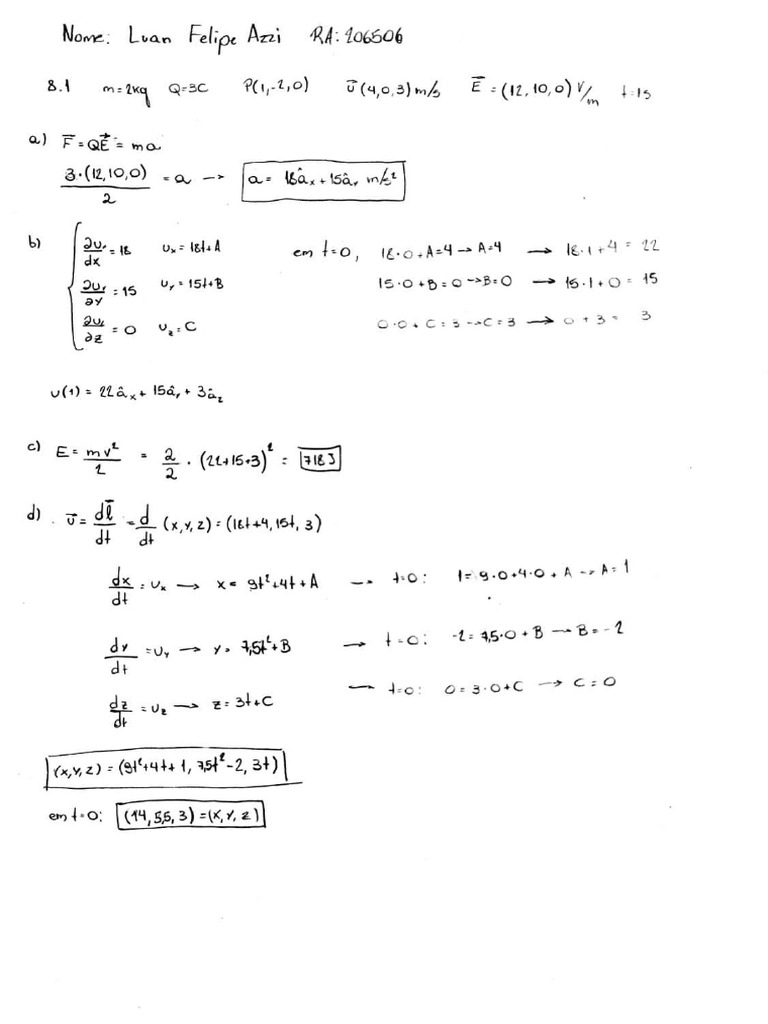 Nome: Luan Felipe Azzi RA: 206506
8.1 m=2kg Q=3C P(1,-2,0) u⃗(4,0,3)m/s E⃗ = (12,10,0) V/m t=1s
a) F⃗ = QE⃗ = ma
3·(12,10,0)/2 = a → a = 18âx + 15ây m/s²
b) ∂ux/dx = 18 ux = 18t+A em t=0, 18·0+A=4 → A=4 → 18·1+4 = 22
∂uy/∂y = 15 uy = 15t+B 15·0+B=0 → B=0 → 15·1+0 = 15
∂uz/∂z = 0 uz = C 0·0+C=3 → C=3 → 0+3 = 3
u(1) = 22âx + 15ây + 3âz
c) E = mv²/2 = 2/2 · (22+15+3)² = 718J
d) u⃗ = dl⃗/dt = d/dt (x,y,z) = (18t+4, 15t, 3)
dx/dt = ux → x = 9t²+4t+A → t=0: 1=9·0+4·0+A → A=1
dy/dt = uy → y = 7,5t²+B → t=0: -2=7,5·0+B → B=-2
dz/dt = uz → z = 3t+C → t=0: 0=3·0+C → C=0
(x,y,z) = (9t²+4t+1, 7,5t²-2, 3t)
em t=0: (14, 5,5, 3) = (x,y,z)